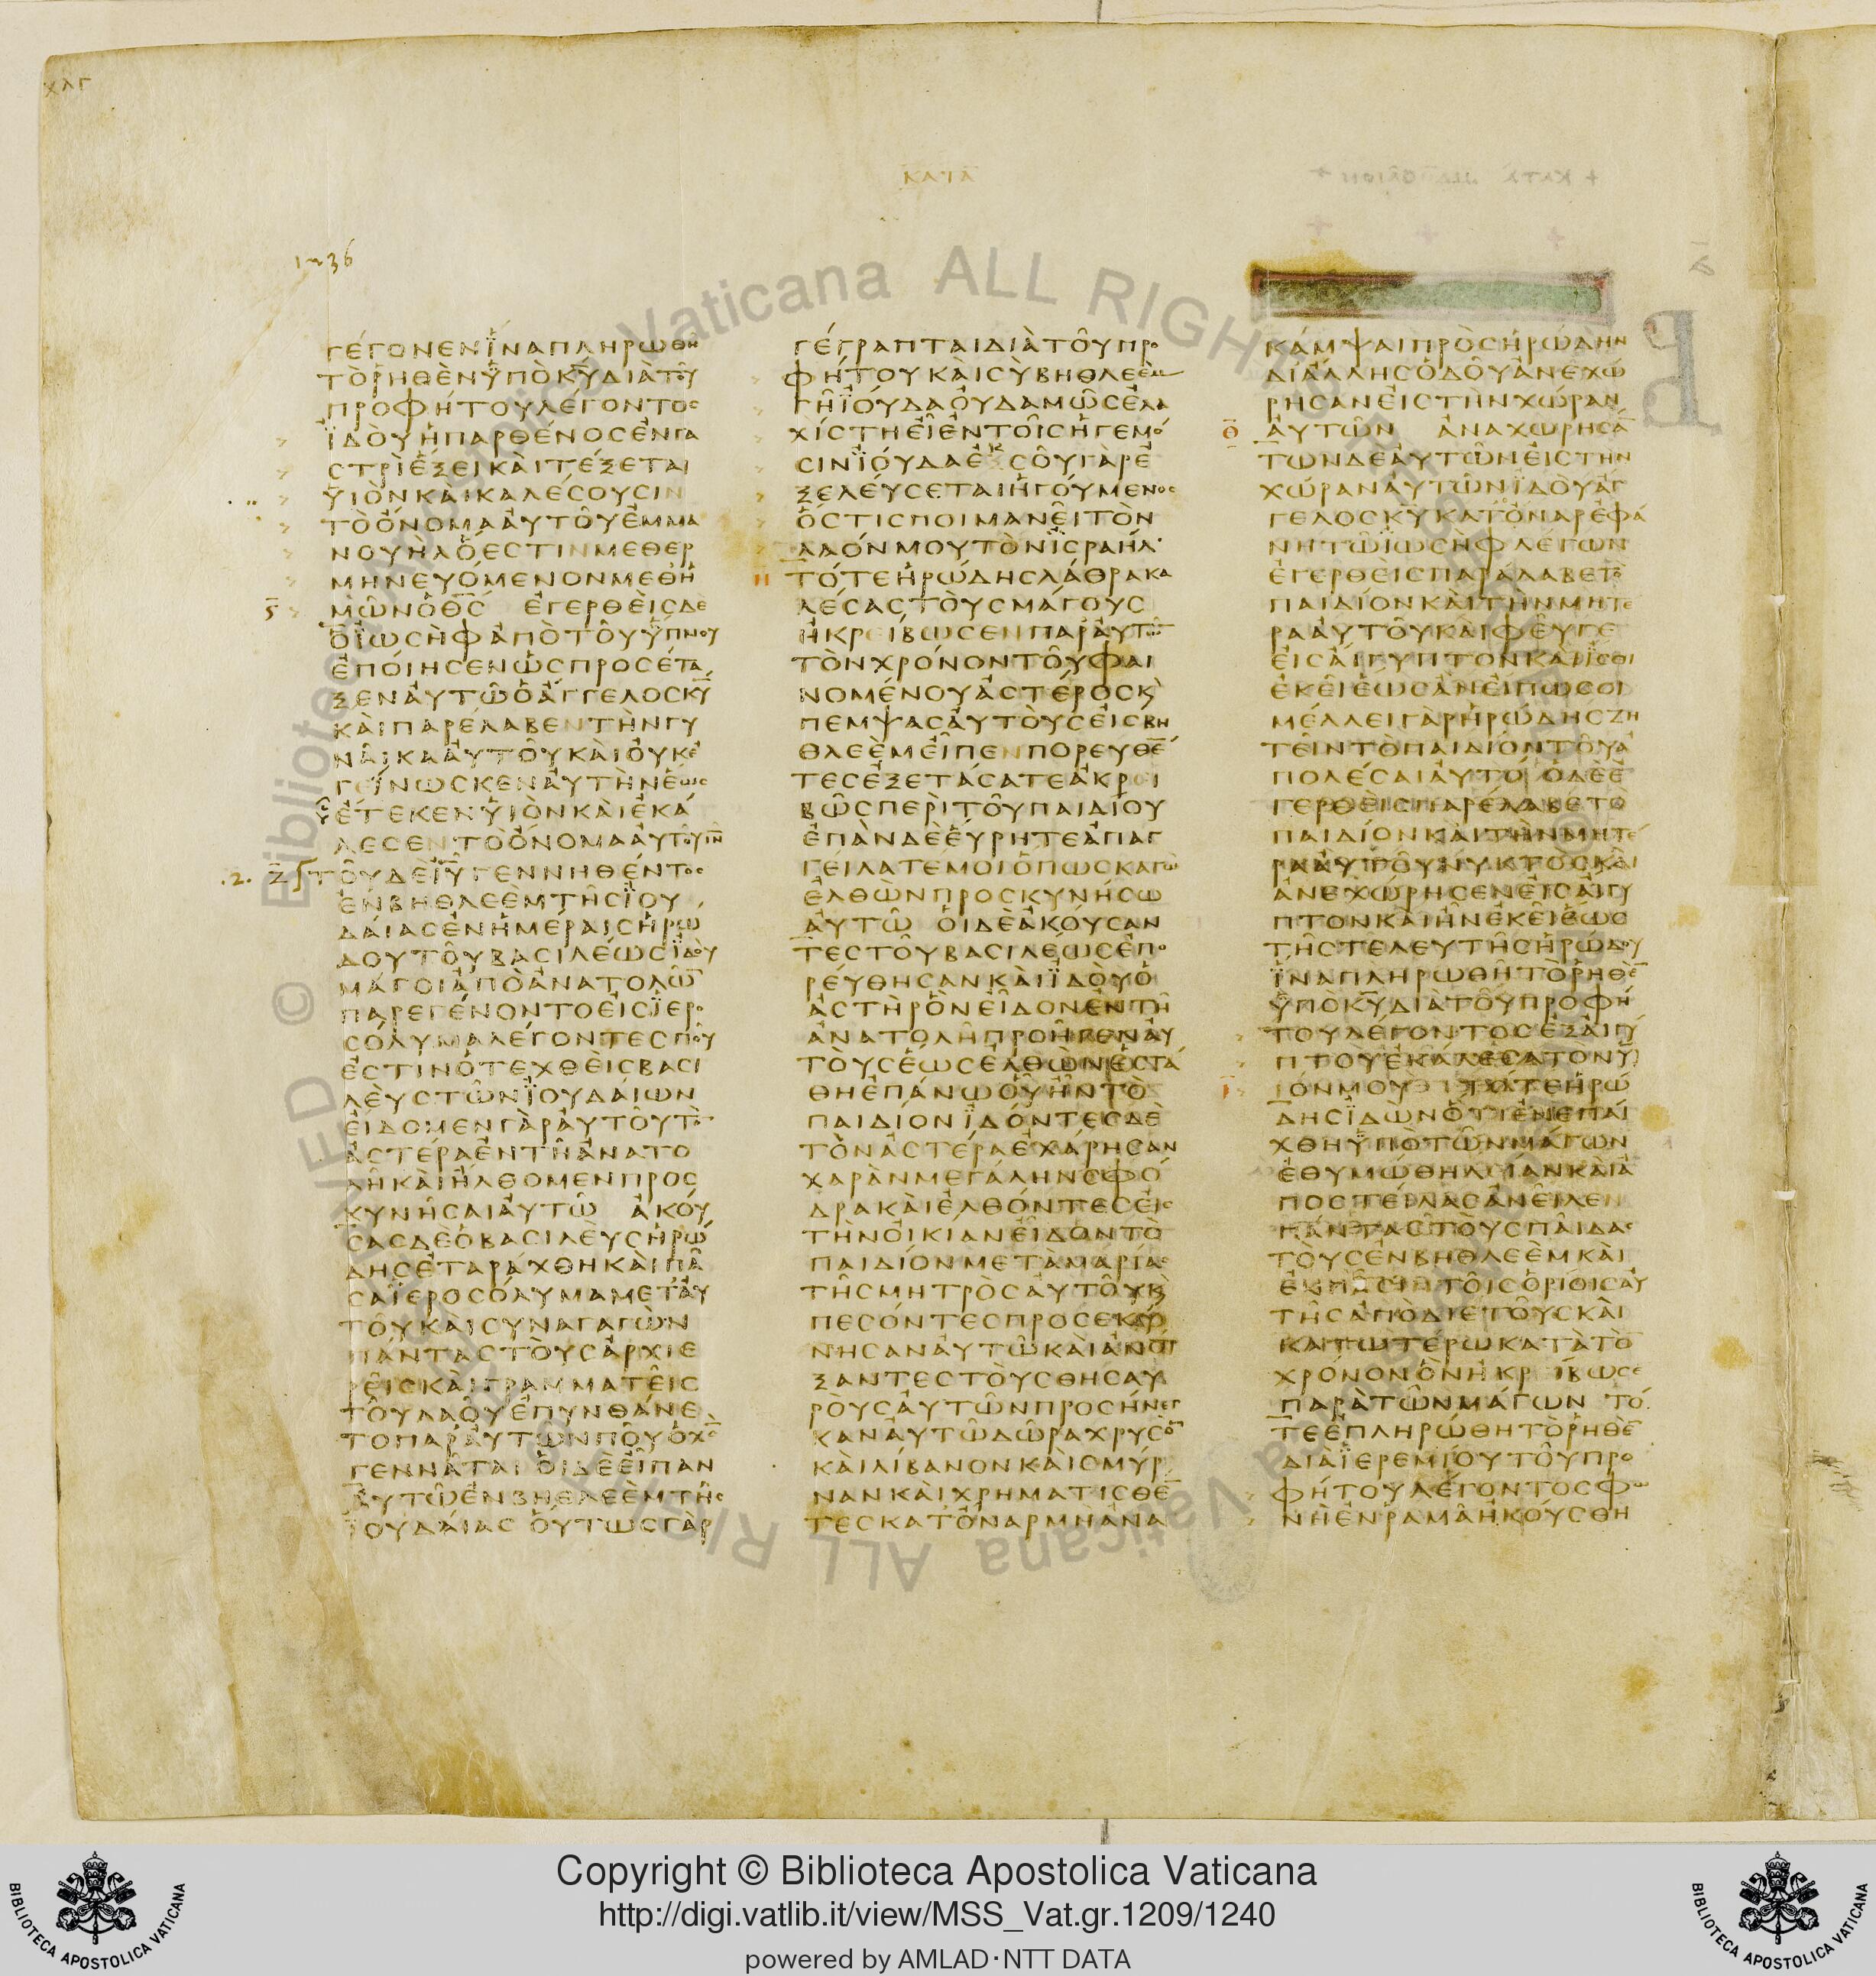 ΚΑΤΑ
1236
ΓΕΓΟΝΕΝΪΝΑΠΛΗΡΩΘΗ
ΤΟΡΗΘΕΝΫΠΟΚΥΔΙΑΤΟΥ
ΠΡΟΦΗΤΟΥΛΕΓΟΝΤΟϹ
ΪΔΟΥΗΠΑΡΘΕΝΟϹΕΝΓΑ
ϹΤΡΙΕΞΕΙΚΑΙΤΕΞΕΤΑΙ
ΫΙΟΝΚΑΙΚΑΛΕϹΟΥϹΙΝ
ΤΟΟΝΟΜΑΑΥΤΟΥΕΜΜΑ
ΝΟΥΗΛΟΕϹΤΙΝΜΕΘΕΡ
ΜΗΝΕΥΟΜΕΝΟΝΜΕΘΗ
ΜΩΝΟΘϹ ΕΓΕΡΘΕΙϹΔΕ
ΟΪΩϹΗΦΑΠΟΤΟΥΫΠΝΟΥ
ΕΠΟΙΗϹΕΝΩϹΠΡΟϹΕΤΑ
ΞΕΝΑΥΤΩΟΑΓΓΕΛΟϹΚΥ
ΚΑΙΠΑΡΕΛΑΒΕΝΤΗΝΓΥ
ΝΑΙΚΑΑΥΤΟΥΚΑΙΟΥΚΕ
ΓΕΙΝΩϹΚΕΝΑΥΤΗΝΕΩϹ
ΕΤΕΚΕΝΫΙΟΝΚΑΙΕΚΑ
ΛΕϹΕΝΤΟΟΝΟΜΑΑΥΤΟΥΙΝ
ΤΟΥΔΕΙΥΓΕΝΝΗΘΕΝΤΟϹ
ΕΝΒΗΘΛΕΕΜΤΗϹΪΟΥ
ΔΑΙΑϹΕΝΗΜΕΡΑΙϹΗΡΩ
ΔΟΥΤΟΥΒΑϹΙΛΕΩϹΪΔΟΥ
ΜΑΓΟΙΑΠΟΑΝΑΤΟΛΩ̅
ΠΑΡΕΓΕΝΟΝΤΟΕΙϹΪΕΡΟ
ϹΟΛΥΜΑΛΕΓΟΝΤΕϹΠΟΥ
ΕϹΤΙΝΟΤΕΧΘΕΙϹΒΑϹΙ
ΛΕΥϹΤΩΝΪΟΥΔΑΙΩΝ
ΕΙΔΟΜΕΝΓΑΡΑΥΤΟΥΤΟ̅
ΑϹΤΕΡΑΕΝΤΗΑΝΑΤΟ
ΛΗΚΑΙΗΛΘΟΜΕΝΠΡΟϹ
ΚΥΝΗϹΑΙΑΥΤΩ ΑΚΟΥ
ϹΑϹΔΕΟΒΑϹΙΛΕΥϹΗΡΩ
ΔΗϹΕΤΑΡΑΧΘΗΚΑΙΠΑ
ϹΑΪΕΡΟϹΟΛΥΜΑΜΕΤΑΥ
ΤΟΥΚΑΙϹΥΝΑΓΑΓΩΝ
ΠΑΝΤΑϹΤΟΥϹΑΡΧΙΕ
ΡΕΙϹΚΑΙΓΡΑΜΜΑΤΕΙϹ
ΤΟΥΛΑΟΥΕΠΥΝΘΑΝΕ
ΤΟΠΑΡΑΥΤΩΝΠΟΥΟΧϹ
ΓΕΝΝΑΤΑΙ ΟΙΔΕΕΙΠΑΝ
ΑΥΤΩΕΝΒΗΘΛΕΕΜΤΗϹ
ΪΟΥΔΑΙΑϹ ΟΥΤΩϹΓΑΡ
ΓΕΓΡΑΠΤΑΙΔΙΑΤΟΥΠΡΟ
ΦΗΤΟΥΚΑΙϹΥΒΗΘΛΕΕΜ
ΓΗΪΟΥΔΑΟΥΔΑΜΩϹΕΛΑ
ΧΙϹΤΗΕΙΕΝΤΟΙϹΗΓΕΜΟ
ϹΙΝΪΟΥΔΑΕΚϹΟΥΓΑΡΕ
ΞΕΛΕΥϹΕΤΑΙΗΓΟΥΜΕΝΟϹ
ΟϹΤΙϹΠΟΙΜΑΝΕΙΤΟΝ
ΛΑΟΝΜΟΥΤΟΝΪϹΡΑΗΛ
ΤΟΤΕΗΡΩΔΗϹΛΑΘΡΑΚΑ
ΛΕϹΑϹΤΟΥϹΜΑΓΟΥϹ
ΗΚΡΕΙΒΩϹΕΝΠΑΡΑΥΤΩ̅
ΤΟΝΧΡΟΝΟΝΤΟΥΦΑΙ
ΝΟΜΕΝΟΥΑϹΤΕΡΟϹΚ
ΠΕΜΨΑϹΑΥΤΟΥϹΕΙϹΒΗ
ΘΛΕΕΜΕΙΠΕΝΠΟΡΕΥΘΕ̅
ΤΕϹΕΞΕΤΑϹΑΤΕΑΚΡΕΙ
ΒΩϹΠΕΡΙΤΟΥΠΑΙΔΙΟΥ
ΕΠΑΝΔΕΕΥΡΗΤΕΑΠΑΓ
ΓΕΙΛΑΤΕΜΟΙΟΠΩϹΚΑΓΩ
ΕΛΘΩΝΠΡΟϹΚΥΝΗϹΩ
ΑΥΤΩ ΟΙΔΕΑΚΟΥϹΑΝ
ΤΕϹΤΟΥΒΑϹΙΛΕΩϹΕΠΟ
ΡΕΥΘΗϹΑΝΚΑΙΪΔΟΥΟ
ΑϹΤΗΡΟΝΕΙΔΟΝΕΝΤΗ
ΑΝΑΤΟΛΗΠΡΟΗΓΕΝΑΥ
ΤΟΥϹΕΩϹΕΛΘΩΝΕϹΤΑ
ΘΗΕΠΑΝΩΟΥΗΝΤΟ
ΠΑΙΔΙΟΝΪΔΟΝΤΕϹΔΕ
ΤΟΝΑϹΤΕΡΑΕΧΑΡΗϹΑΝ
ΧΑΡΑΝΜΕΓΑΛΗΝϹΦΟ
ΔΡΑΚΑΙΕΛΘΟΝΤΕϹΕΙϹ
ΤΗΝΟΙΚΙΑΝΕΙΔΟΝΤΟ
ΠΑΙΔΙΟΝΜΕΤΑΜΑΡΙΑϹ
ΤΗϹΜΗΤΡΟϹΑΥΤΟΥΚ
ΠΕϹΟΝΤΕϹΠΡΟϹΕΚΥ
ΝΗϹΑΝΑΥΤΩΚΑΙΑΝΟΙ
ΞΑΝΤΕϹΤΟΥϹΘΗϹΑΥ
ΡΟΥϹΑΥΤΩΝΠΡΟϹΗΝΕΓ
ΚΑΝΑΥΤΩΔΩΡΑΧΡΥϹΟ̅
ΚΑΙΛΙΒΑΝΟΝΚΑΙϹΜΥΡ
ΝΑΝΚΑΙΧΡΗΜΑΤΙϹΘΕ̅
ΤΕϹΚΑΤΟΝΑΡΜΗΑΝΑ
ΚΑΜΨΑΙΠΡΟϹΗΡΩΔΗΝ
ΔΙΑΛΛΗϹΟΔΟΥΑΝΕΧΩ
ΡΗϹΑΝΕΙϹΤΗΝΧΩΡΑΝ
ΑΥΤΩΝ ΑΝΑΧΩΡΗϹΑ̅
ΤΩΝΔΕΑΥΤΩΝΕΙϹΤΗΝ
ΧΩΡΑΝΑΥΤΩΝΪΔΟΥΑΓ
ΓΕΛΟϹΚΥΚΑΤΟΝΑΡΕΦΑ
ΝΗΤΩΪΩϹΗΦΛΕΓΩΝ
ΕΓΕΡΘΕΙϹΠΑΡΑΛΑΒΕΤΟ
ΠΑΙΔΙΟΝΚΑΙΤΗΝΜΗΤΕ
ΡΑΑΥΤΟΥΚΑΙΦΕΥΓΕ
ΕΙϹΑΙΓΥΠΤΟΝΚΑΙΪϹΘΙ
ΕΚΕΙΕΩϹΑΝΕΙΠΩϹΟΙ
ΜΕΛΛΕΙΓΑΡΗΡΩΔΗϹΖΗ
ΤΕΙΝΤΟΠΑΙΔΙΟΝΤΟΥΑ
ΠΟΛΕϹΑΙΑΥΤΟ ΟΔΕΕ
ΓΕΡΘΕΙϹΠΑΡΕΛΑΒΕΤΟ
ΠΑΙΔΙΟΝΚΑΙΤΗΝΜΗΤΕ
ΡΑΑΥΤΟΥΝΥΚΤΟϹΚΑΙ
ΑΝΕΧΩΡΗϹΕΝΕΙϹΑΙΓΥ
ΠΤΟΝΚΑΙΗΝΕΚΕΙΕΩϹ
ΤΗϹΤΕΛΕΥΤΗϹΗΡΩΔΟΥ
ΪΝΑΠΛΗΡΩΘΗΤΟΡΗΘΕ̅
ΫΠΟΚΥΔΙΑΤΟΥΠΡΟΦΗ
ΤΟΥΛΕΓΟΝΤΟϹΕΞΑΙΓΥ
ΠΤΟΥΕΚΑΛΕϹΑΤΟΝΥ
ΙΟΝΜΟΥ ΤΟΤΕΗΡΩ
ΔΗϹΪΔΩΝΟΤΙΕΝΕΠΑΙ
ΧΘΗΫΠΟΤΩΝΜΑΓΩΝ
ΕΘΥΜΩΘΗΛΙΑΝΚΑΙΑ
ΠΟϹΤΕΙΛΑϹΑΝΕΙΛΕΝ
ΠΑΝΤΑϹΤΟΥϹΠΑΙΔΑϹ
ΤΟΥϹΕΝΒΗΘΛΕΕΜΚΑΙ
ΤΗϹΑΠΟΔΙΕΤΟΥϹΚΑΙ
ΚΑΤΩΤΕΡΩΚΑΤΑΤΟ̅
ΧΡΟΝΟΝΟΝΗΚΡ ΙΒΩϹΕ
ΠΑΡΑΤΩΝΜΑΓΩΝ ΤΟ
ΤΕΕΠΛΗΡΩΘΗΤΟΡΗΘΕ̅
ΔΙΑΪΕΡΕΜΙΟΥΤΟΥΠΡΟ
ΦΗΤΟΥΛΕΓΟΝΤΟϹΦΩ
ΝΗΕΝΡΑΜΑΗΚΟΥϹΘΗ
Copyright © Biblioteca Apostolica Vaticana
http://digi.vatlib.it/view/MSS_Vat.gr.1209/1240
powered by AMLAD·NTT DATA
BIBLIOTECA APOSTOLICA VATICANA
BIBLIOTECA APOSTOLICA VATICANA